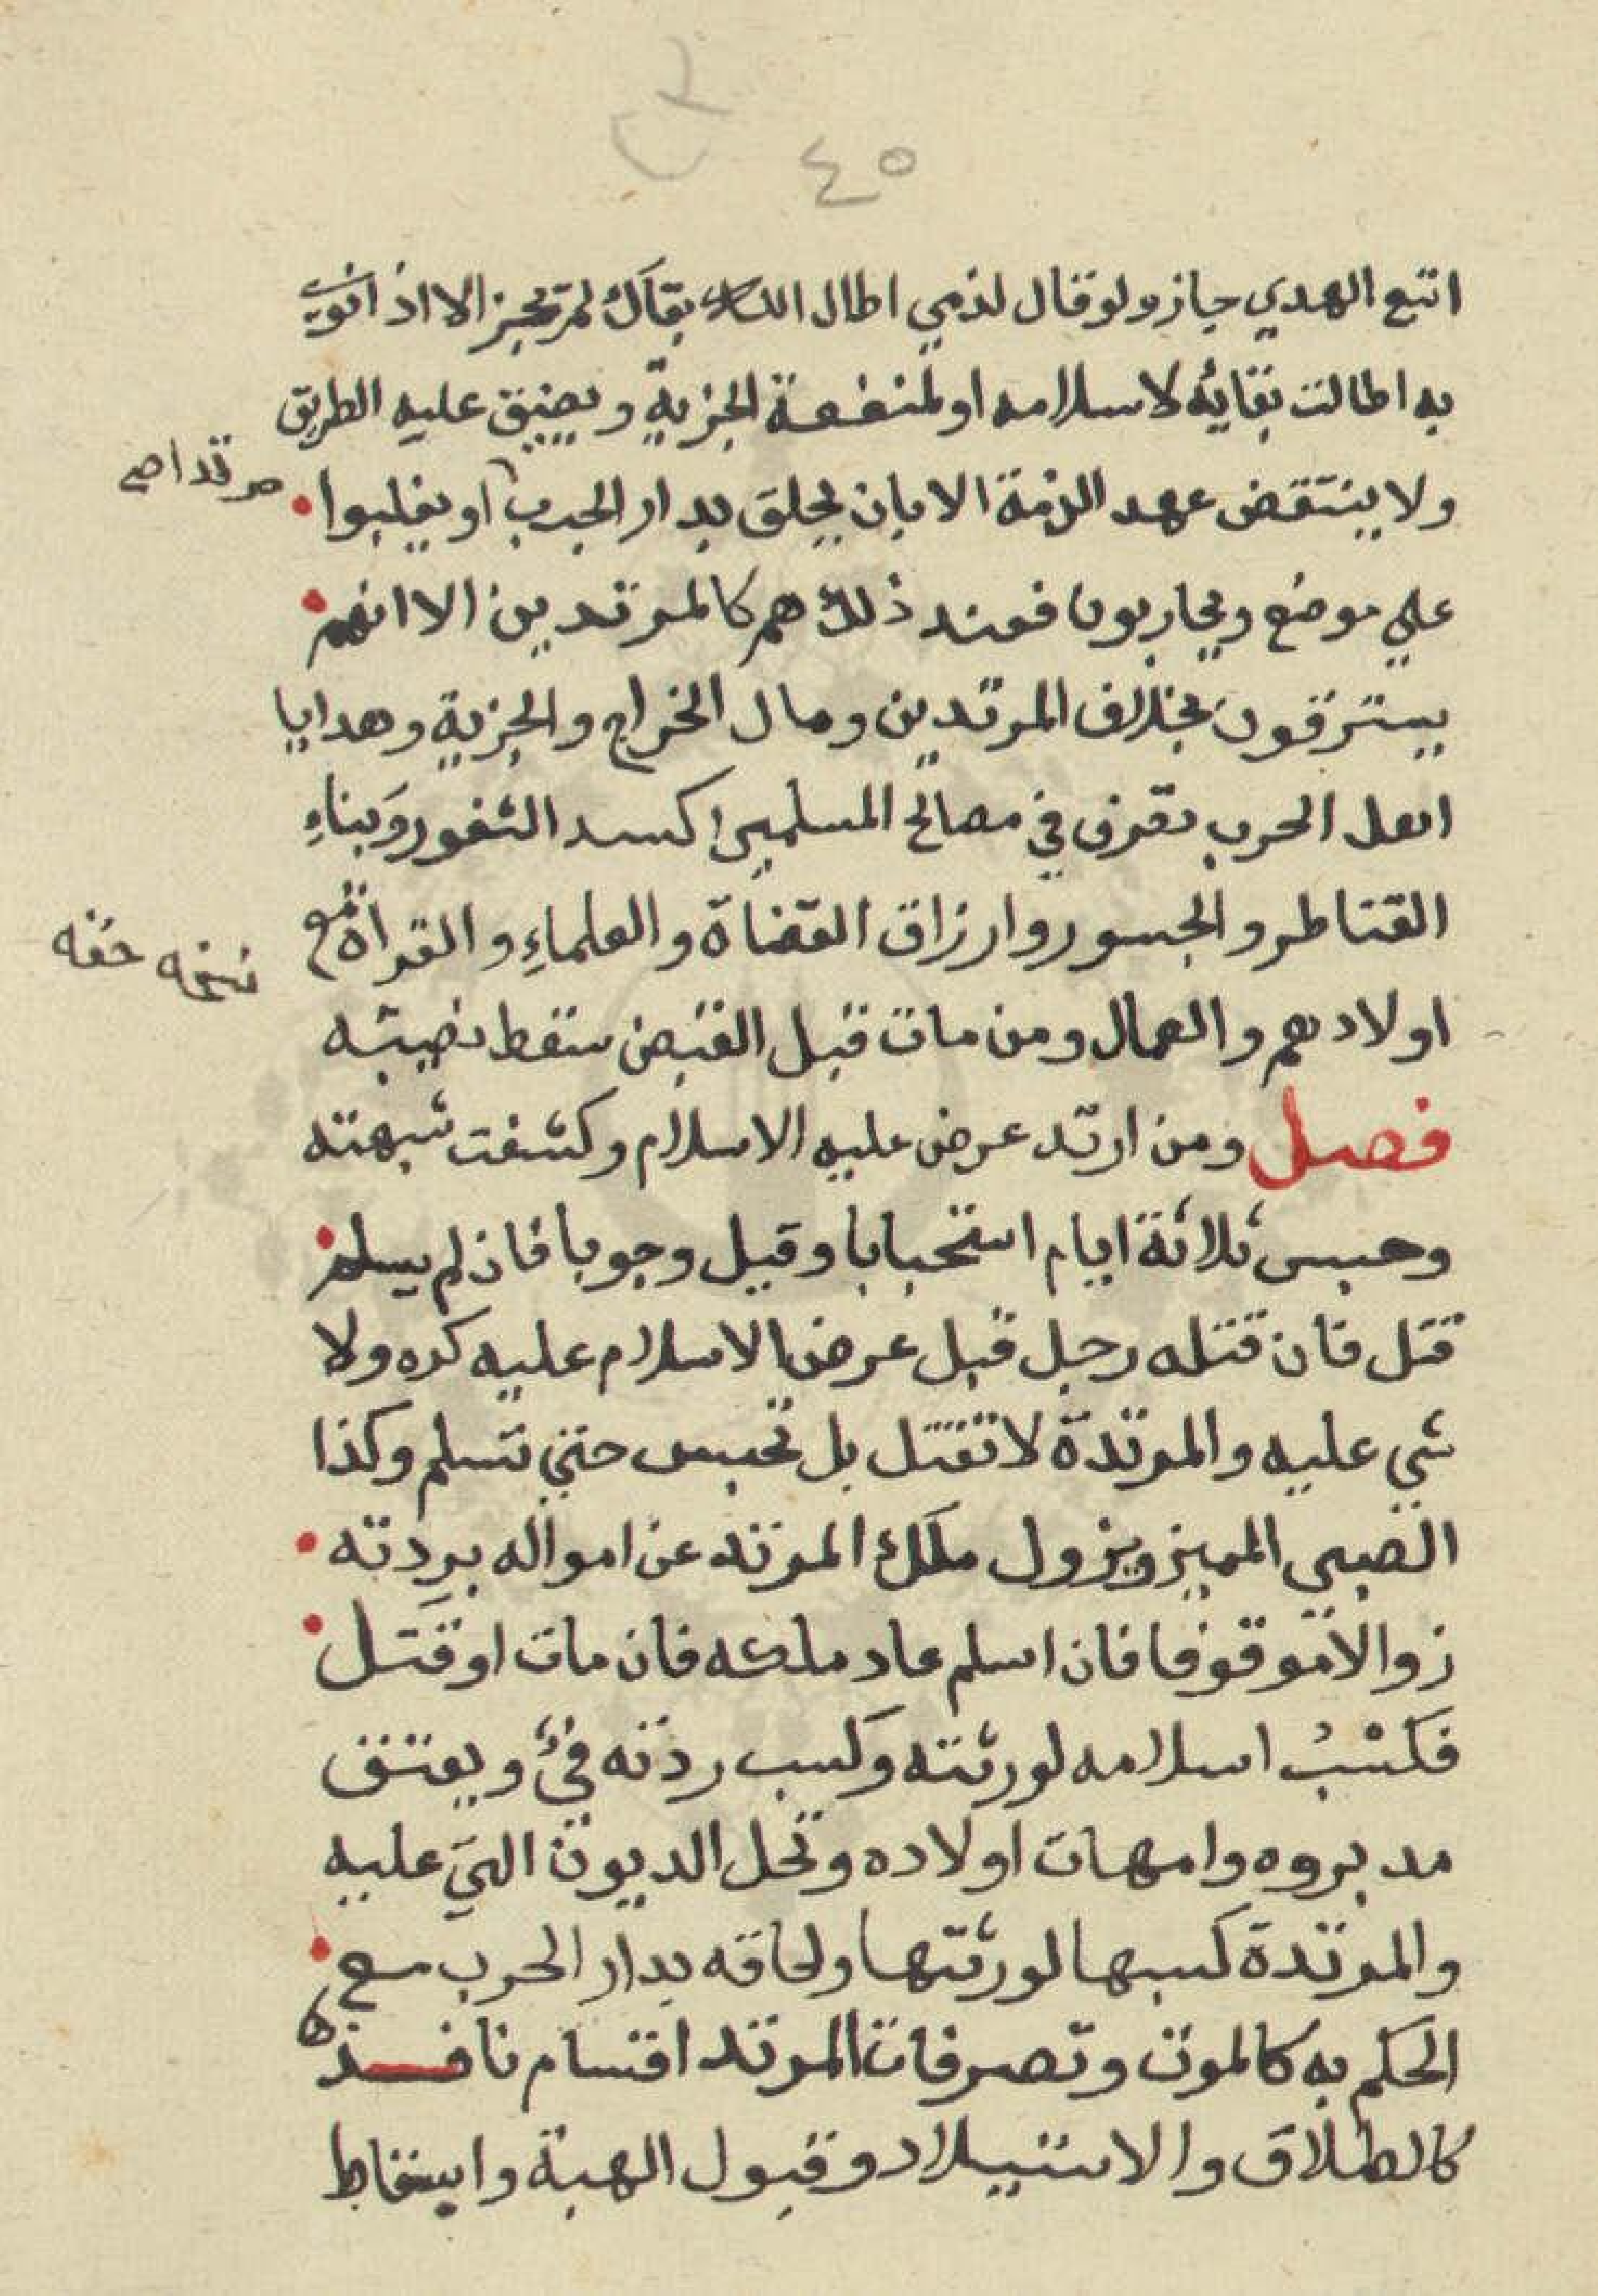 ٤٥
اتبع الهدي جاز ولو قال لذمي اطال الله بقاك لم يجز الا اذ انوي
به اطالت بقائه لاسلامه او لمنفعة الجزية ويضيق عليه الطريق
ولا ينتقض عهد الذمة الا بان يحلق بدار الحرب او يغلبوا
مرتد اصح
علي موضع ويحاربونا فعند ذلك هم كالمرتدين الا انهم
يسترقون بخلاف المرتدين ومال الخراج والجزية وهدايا
اهل الحرب تصرف في مصالح المسلمين كسد الثغور وبناء
القناطر والجسور وارزاق القضاة والعلماء والقراة مع
نسخه حقه
اولادهم والعمال ومن مات قبل القبض سقط نصيبه
فصل ومن ارتد عرض عليه الاسلام وكشفت شبهته
وحبس ثلاثة ايام استحبابا وقيل وجوبا فان لم يسلم
قتل فان قتله رجل قبل عرض الاسلام عليه كره ولا
شي عليه والمرتدة لا تقتل بل تحبس حتي تسلم وكذا
الصبي المميز ويزول ملك المرتد عن امواله بردته
زوالا موقوفا فان اسلم عاد ملكه فان مات او قتل
فكسْبُ اسلامه لورثته وكسب ردته فيْ ويعتق
مدبروه وامهات اولاده وتحل الديون التي عليه
والمرتدة كسبها لورثتها ولحاقه بدار الحرب مع
الحكم به كالموت وتصرفات المرتد اقسام نافذة
كالطلاق والاستيلاد وقبول الهبة واسقاط